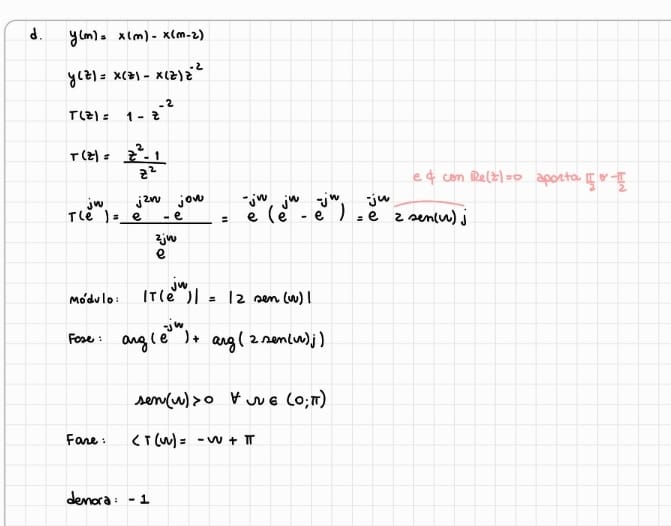 d. y(m) = x(m) - x(m-2)
y(z) = x(z) - x(z)z^-2
T(z) = 1 - z^-2
T(z) = (z^2 - 1)/z^2
e ∉ con Re(z)=0 aporta π/2 o -π/2
T(e^jw) = (e^j2w - e^j0w)/e^2jw = e^-jw (e^jw - e^-jw) = e^-jw 2 sen(w) j
Módulo: |T(e^jw)| = |2 sen(w)|
Fase: arg(e^-jw) + arg(2 sen(w) j)
sen(w) > 0 ∀ w ∈ (0; π)
Fase: <T(w) = -w + π
demora: -1